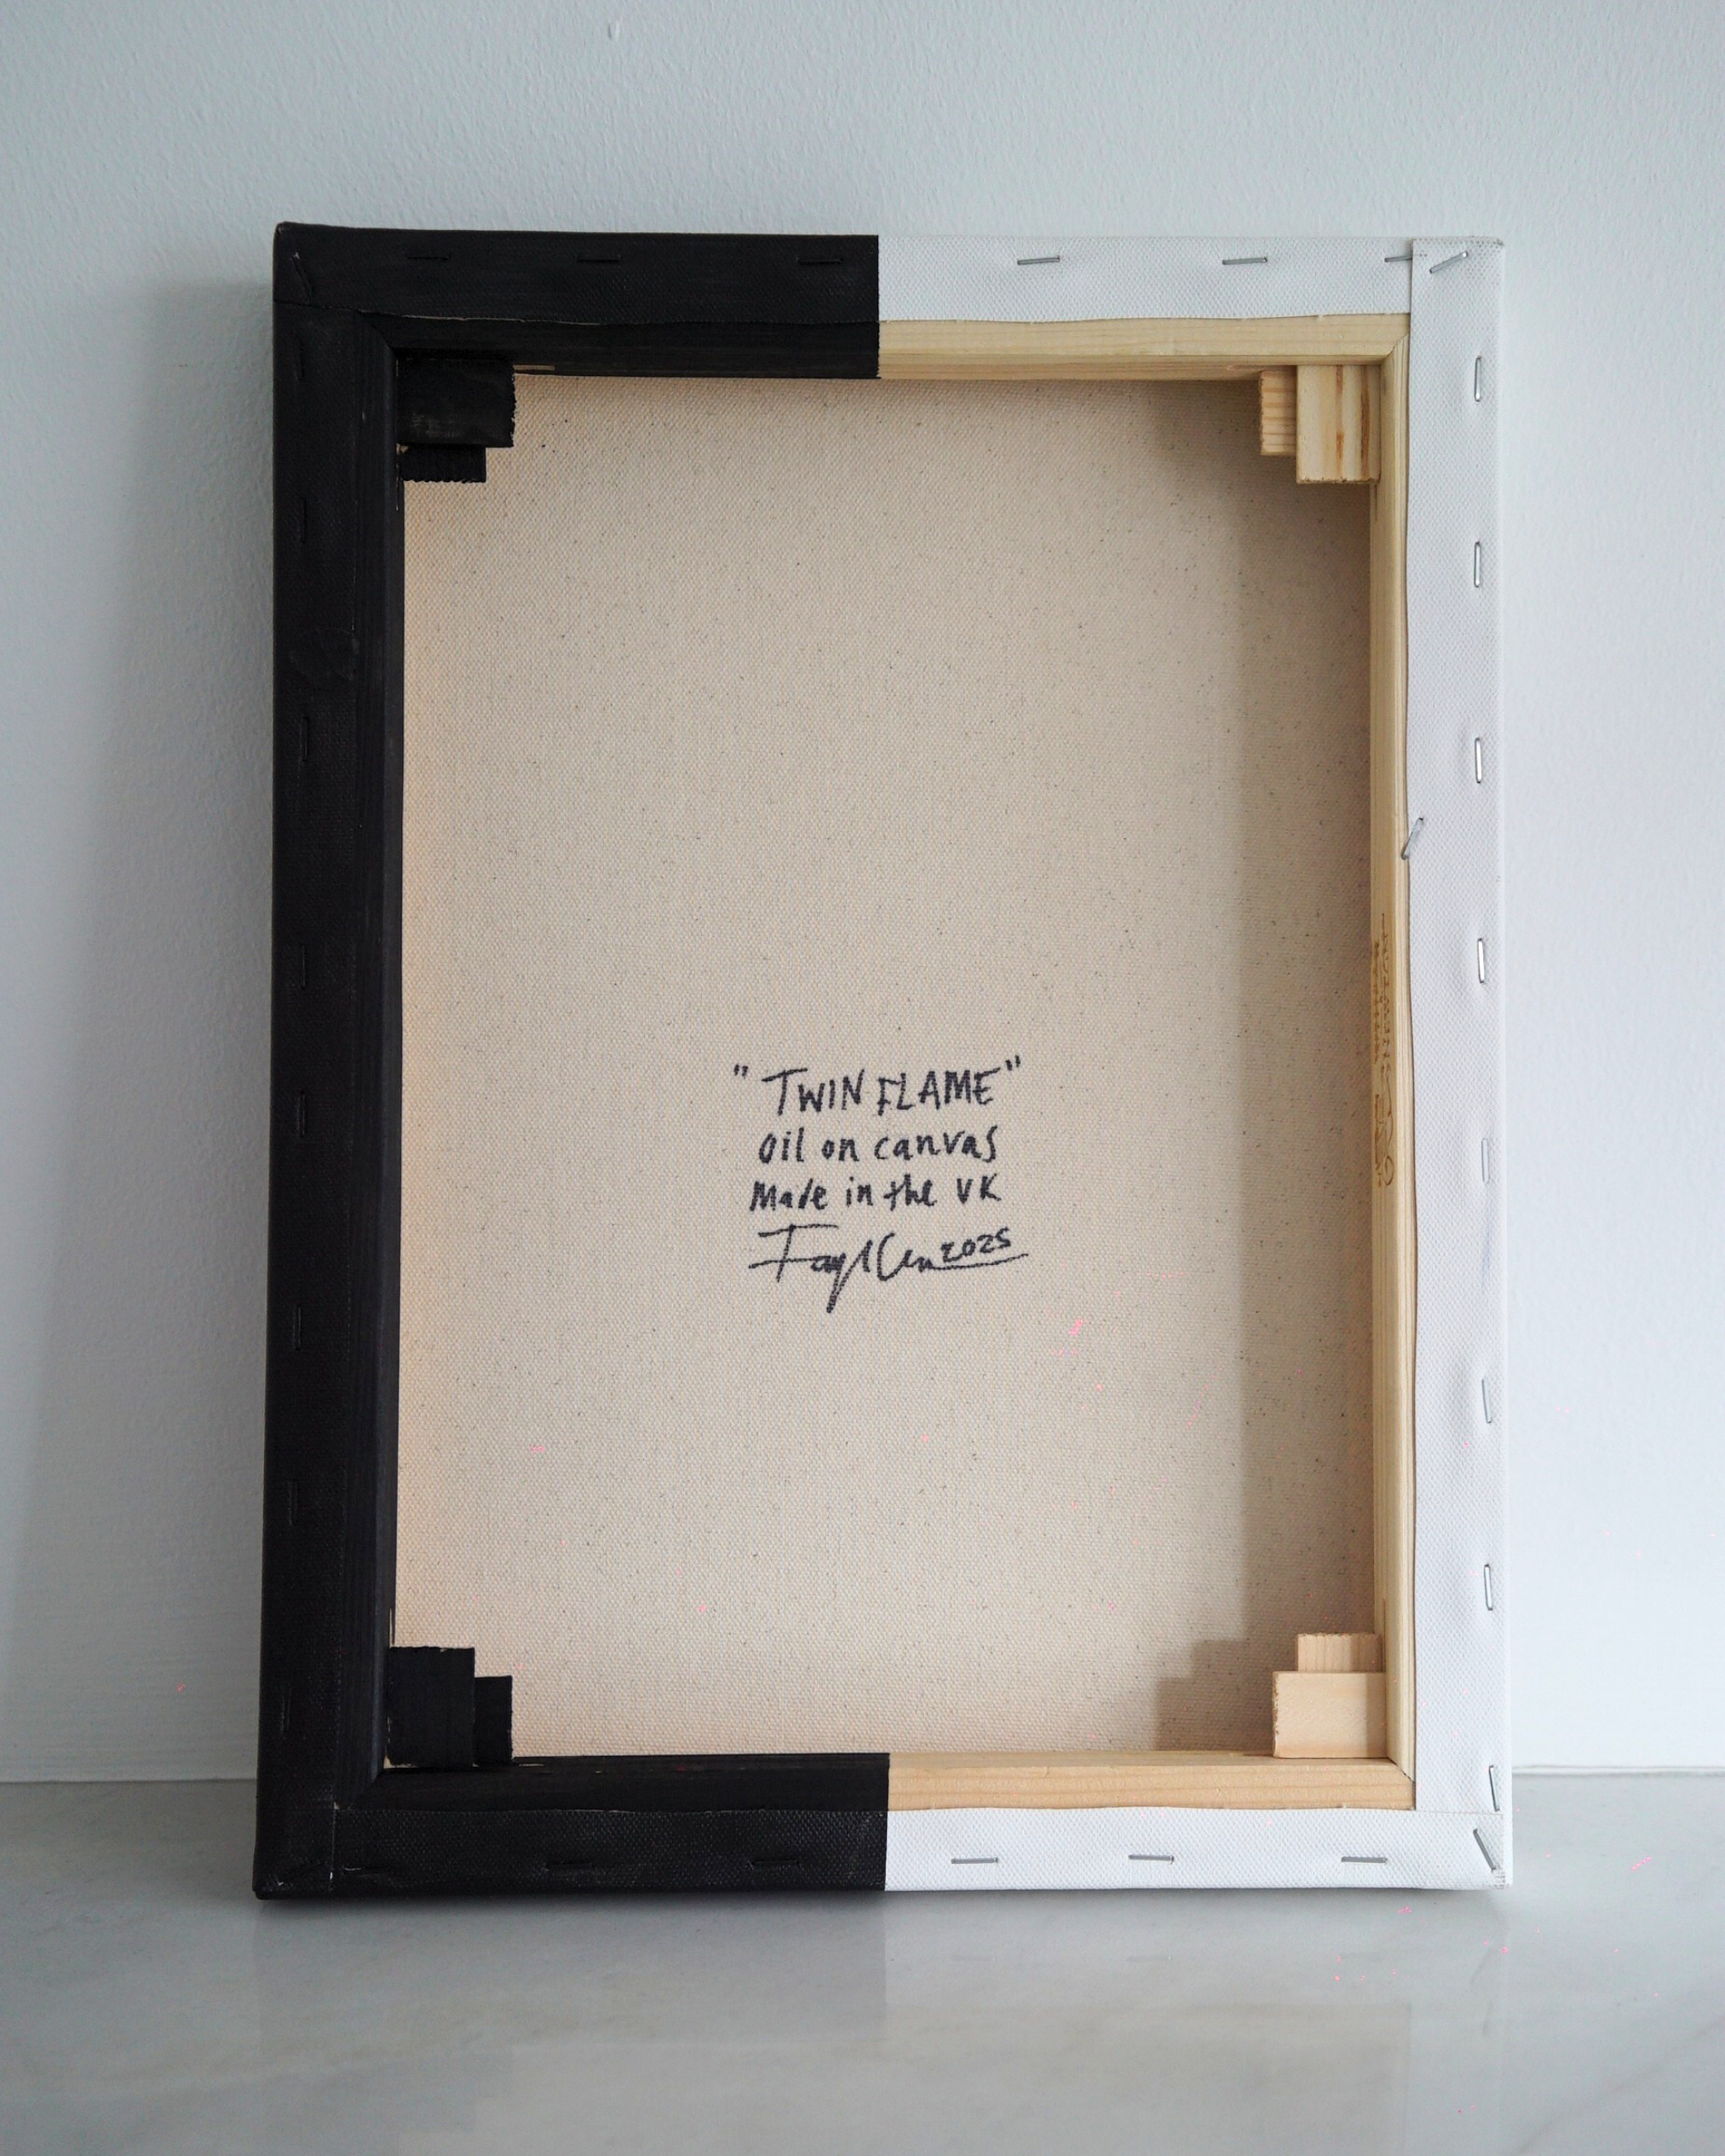 "TWIN FLAME"
oil on canvas
Made in the UK
2025